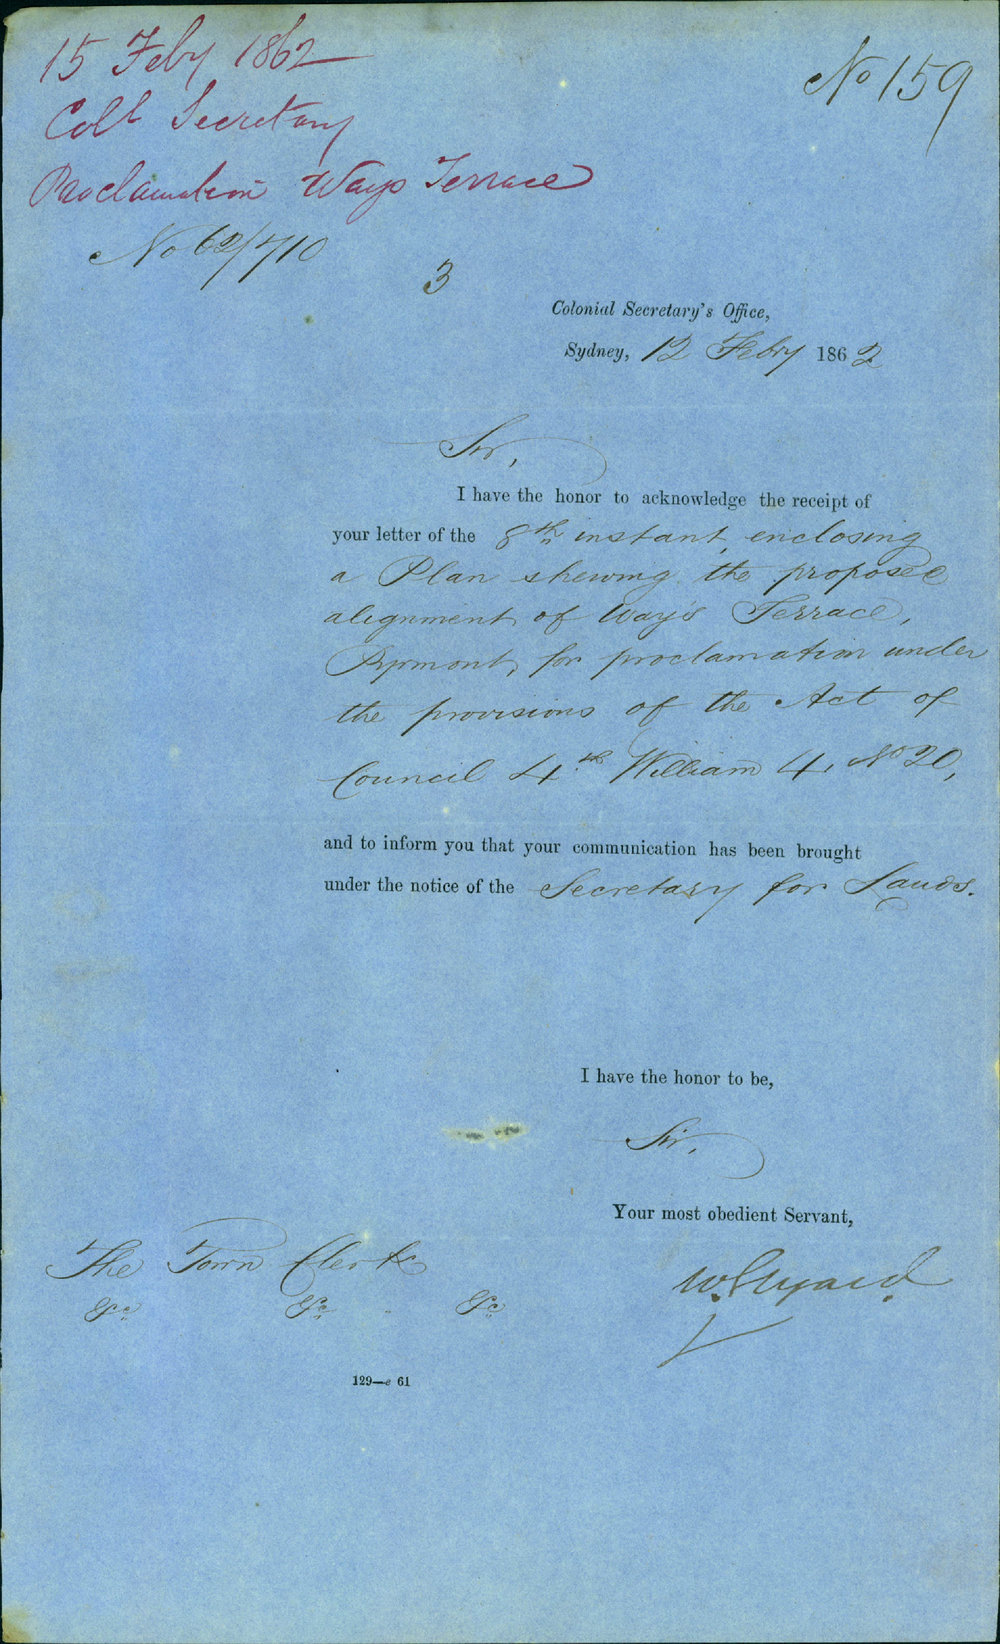 15 Feby 1862
No 159
Coll Secretary
Proclamation Ways Terrace
No 62/710
3
Colonial Secretary's Office,
Sydney, 12 Febry 1862
Sir,
I have the honor to acknowledge the receipt of
your letter of the 8th instant, enclosing
a Plan shewing the proposed
alignment of Way's Terrace,
Pyrmont, for proclamation under
the provisions of the Act of
Council 4th William 4, No 20,
and to inform you that your communication has been brought
under the notice of the Secretary for Lands.
I have the honor to be,
Sir,
Your most obedient Servant,
The Town Clerk
&c &c &c
129—e 61